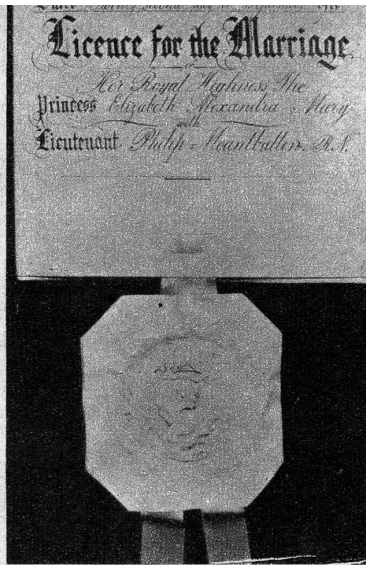 Licence for the Marriage
of
Her Royal Highness The
Princess Elizabeth Alexandra Mary
with
Lieutenant Philip Mountbatten, R.N.